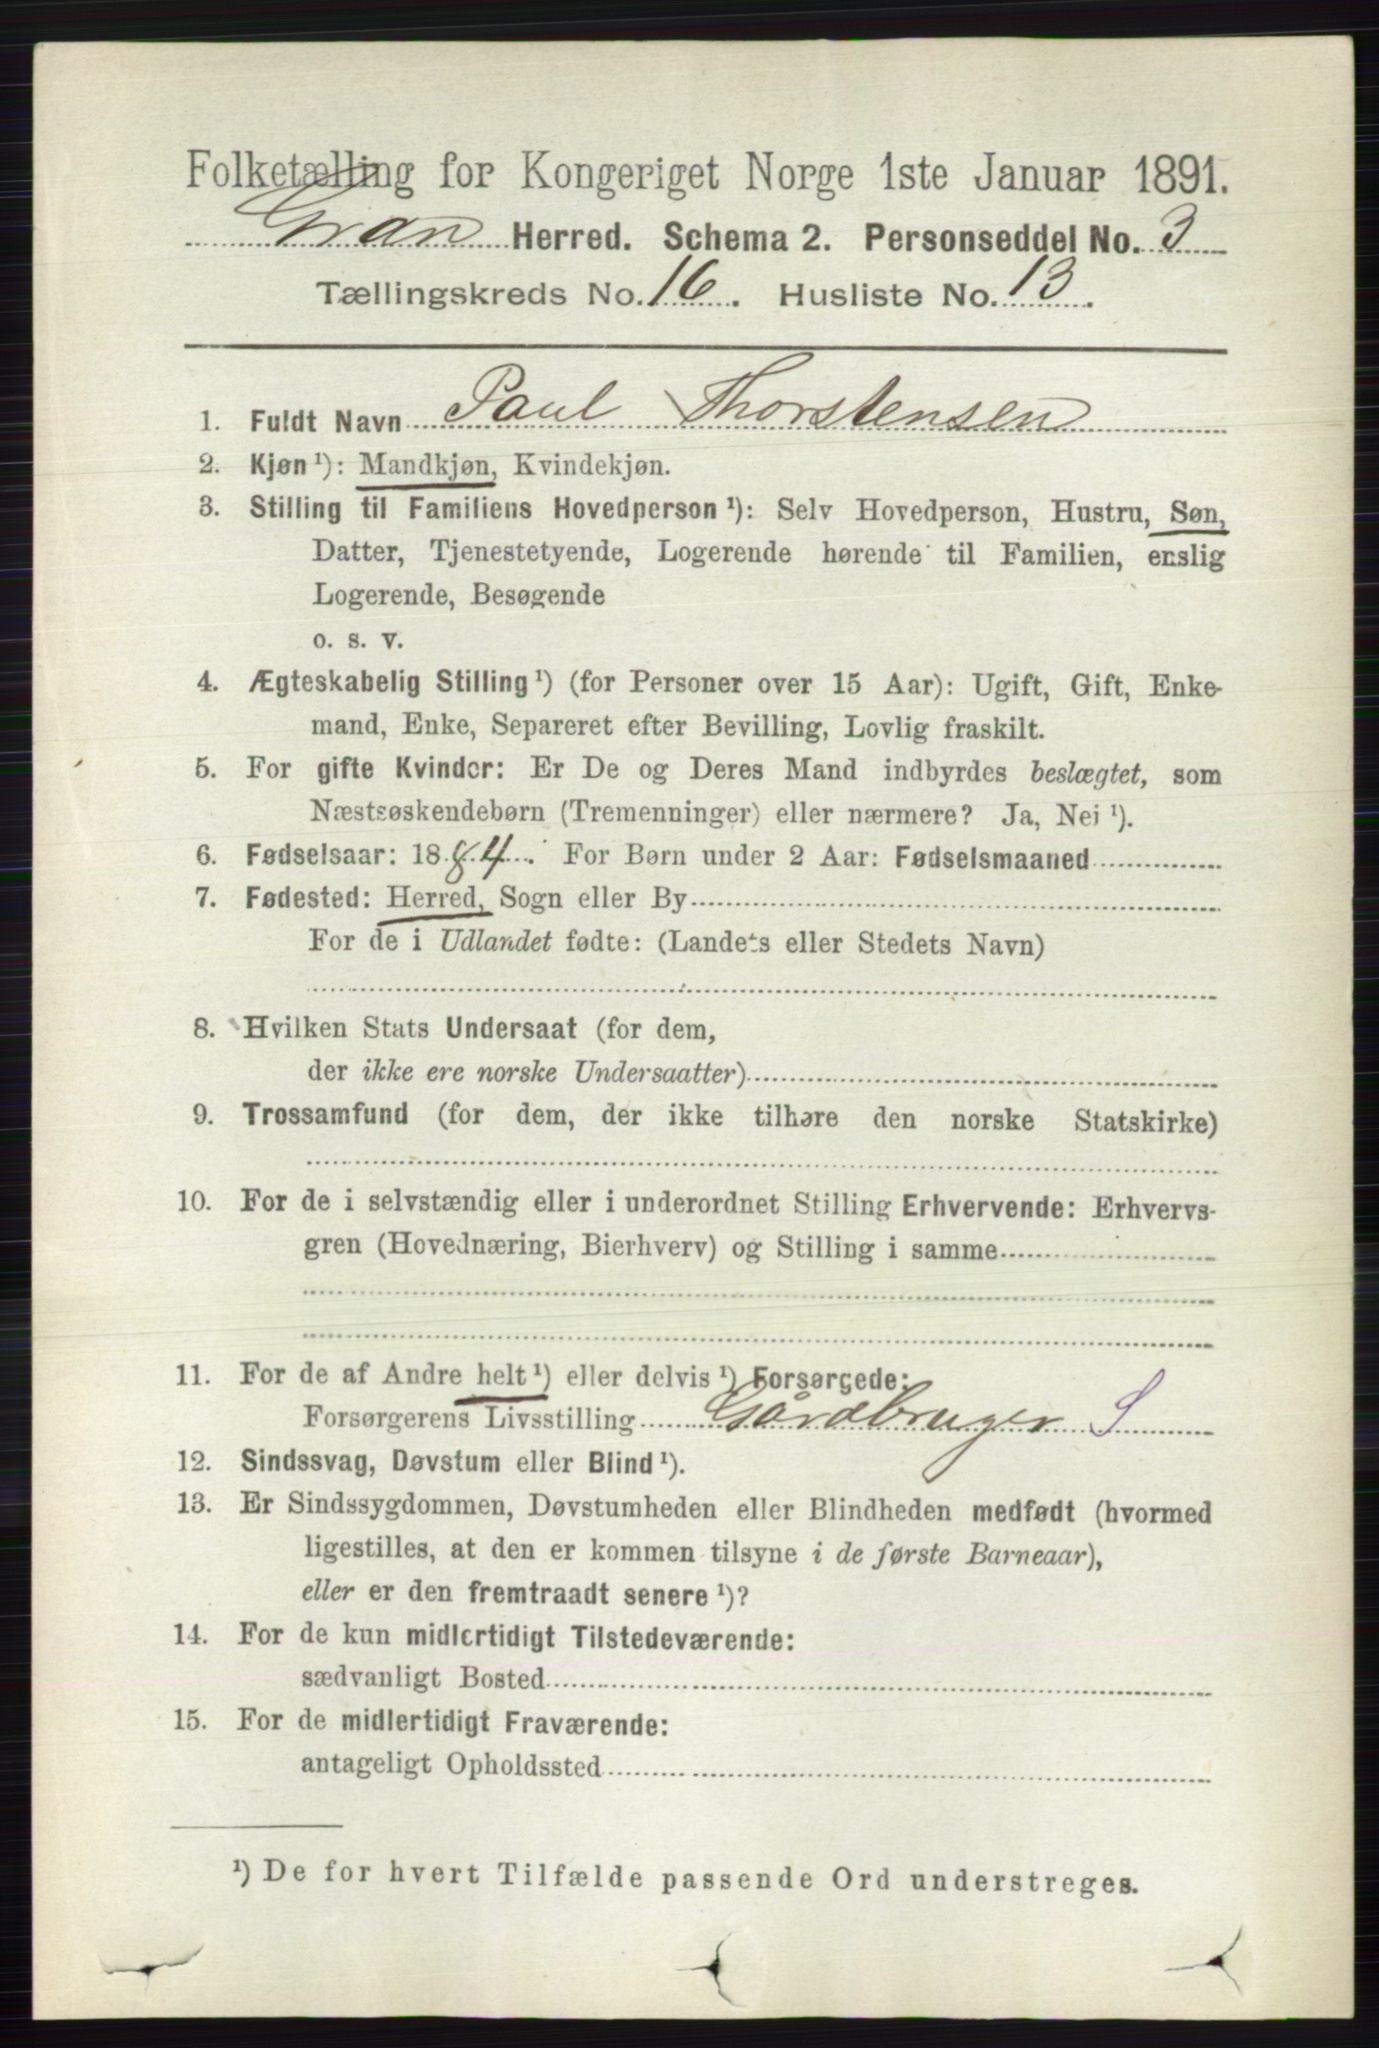 Folketælling for Kongeriget Norge 1ste Januar 1891.
Gran Herred. Schema 2. Personseddel No. 3
Tællingskreds No. 16. Husliste No. 13.
1. Fuldt Navn Paul Thorstensen
2. Kjøn ¹): Mandkjøn, Kvindekjøn.
3. Stilling til Familiens Hovedperson ¹): Selv Hovedperson, Hustru, Søn,
Datter, Tjenestetyende, Logerende hørende til Familien, enslig
Logerende, Besøgende
o. s. v.
4. Ægteskabelig Stilling ¹) (for Personer over 15 Aar): Ugift, Gift, Enke-
mand, Enke, Separeret efter Bevilling, Lovlig fraskilt.
5. For gifte Kvinder: Er De og Deres Mand indbyrdes beslægtet, som
Næstsøskendebørn (Tremenninger) eller nærmere? Ja, Nei ¹).
6. Fødselsaar: 1884. For Børn under 2 Aar: Fødselsmaaned
7. Fødested: Herred, Sogn eller By
For de i Udlandet fødte: (Landets eller Stedets Navn)
8. Hvilken Stats Undersaat (for dem,
der ikke ere norske Undersaatter)
9. Trossamfund (for dem, der ikke tilhøre den norske Statskirke)
10. For de i selvstændig eller i underordnet Stilling Erhvervende: Erhvervs-
gren (Hovednæring, Bierhverv) og Stilling i samme
11. For de af Andre helt ¹) eller delvis ¹) Forsørgede:
Forsørgerens Livsstilling Gårdbruger S
12. Sindssvag, Døvstum eller Blind ¹).
13. Er Sindssygdommen, Døvstumheden eller Blindheden medfødt (hvormed
ligestilles, at den er kommen tilsyne i de første Barneaar),
eller er den fremtraadt senere ¹)?
14. For de kun midlertidigt Tilstedeværende:
sædvanligt Bosted
15. For de midlertidigt Fraværende:
antageligt Opholdssted
¹) De for hvert Tilfælde passende Ord understreges.